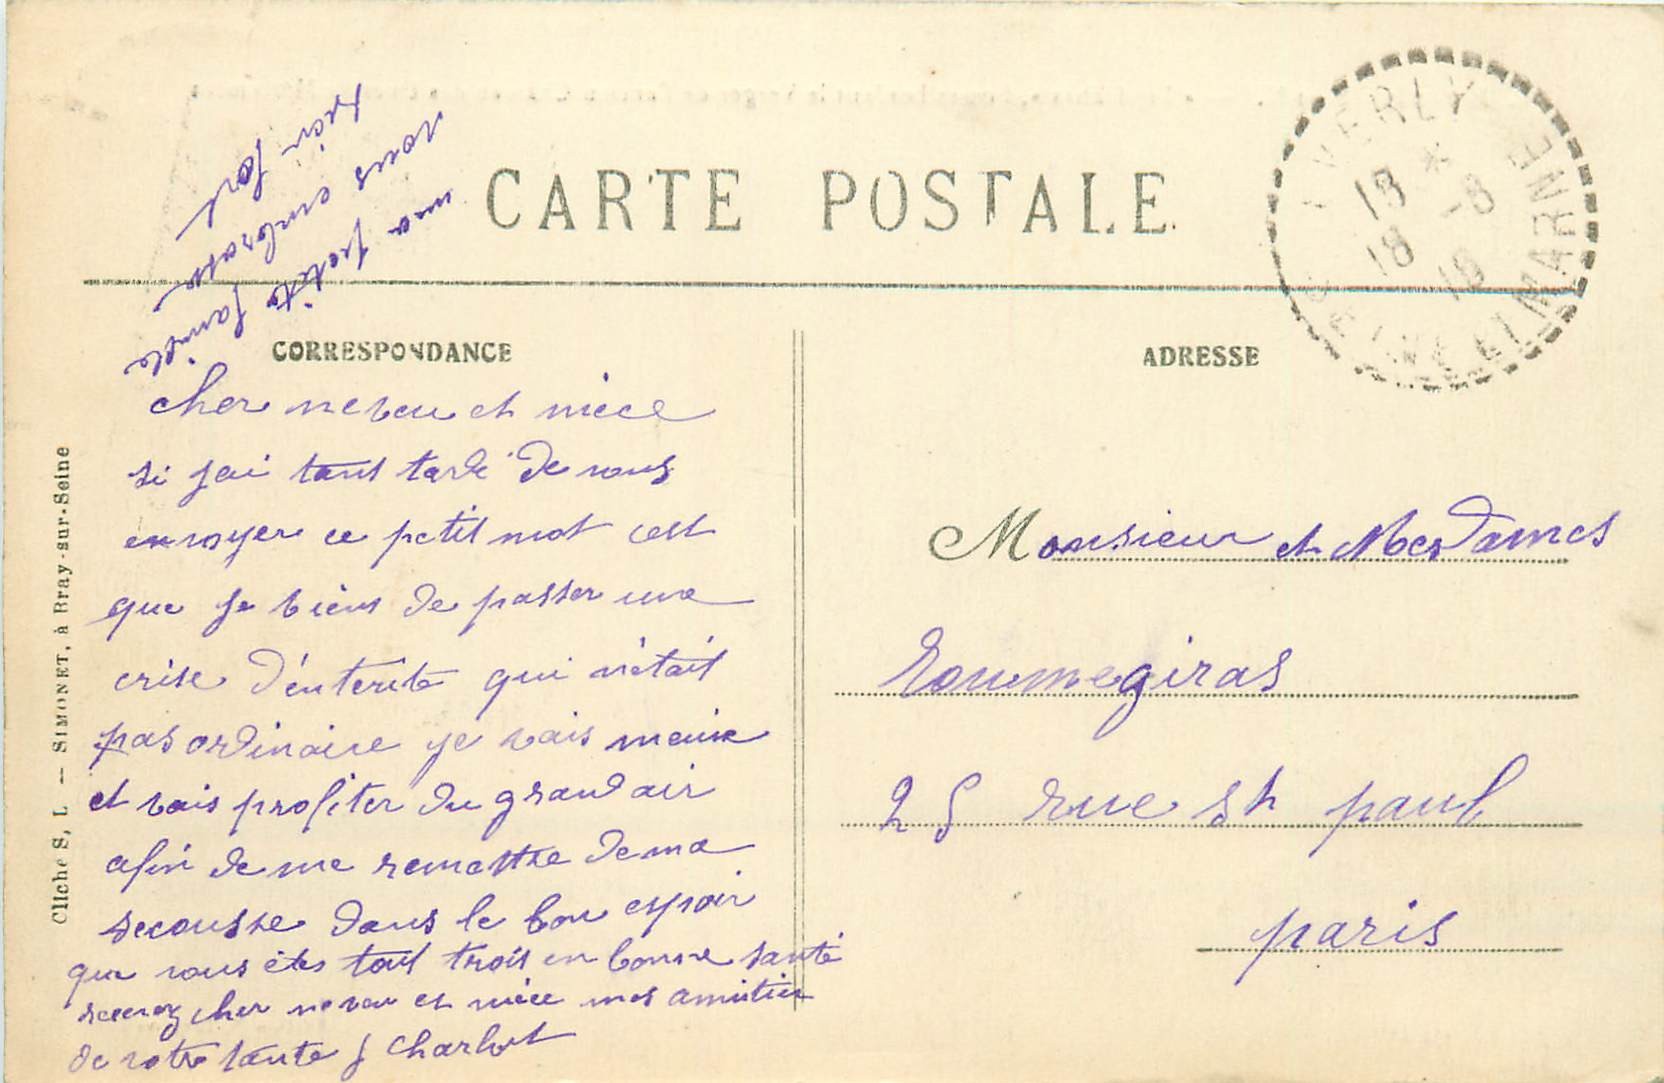 CARTE POSTALE
CORRESPONDANCE
ADRESSE
ma petite famille
vous embrasse
bien fort
cher neveu et niece
si jai tant tardé de vous
envoyer ce petit mot cest
que je viens de passer une
crise d'enterite qui nétait
pas ordinaire je vais mieux
et vais profiter du grand air
afin de me remettre de ma
secousse dans le bon espoir
que vous étes tout trois en bonne santé
recevez cher neveu et niéce mes amitiés
de votre tante J Charlot
Monsieur et Mesdames
Roumegiras
25 rue St paul
paris
Cliché S. L. — SIMONET, à Bray-sur-Seine
EVERLY
*
18 -8
18 18
SEINE ET MARNE